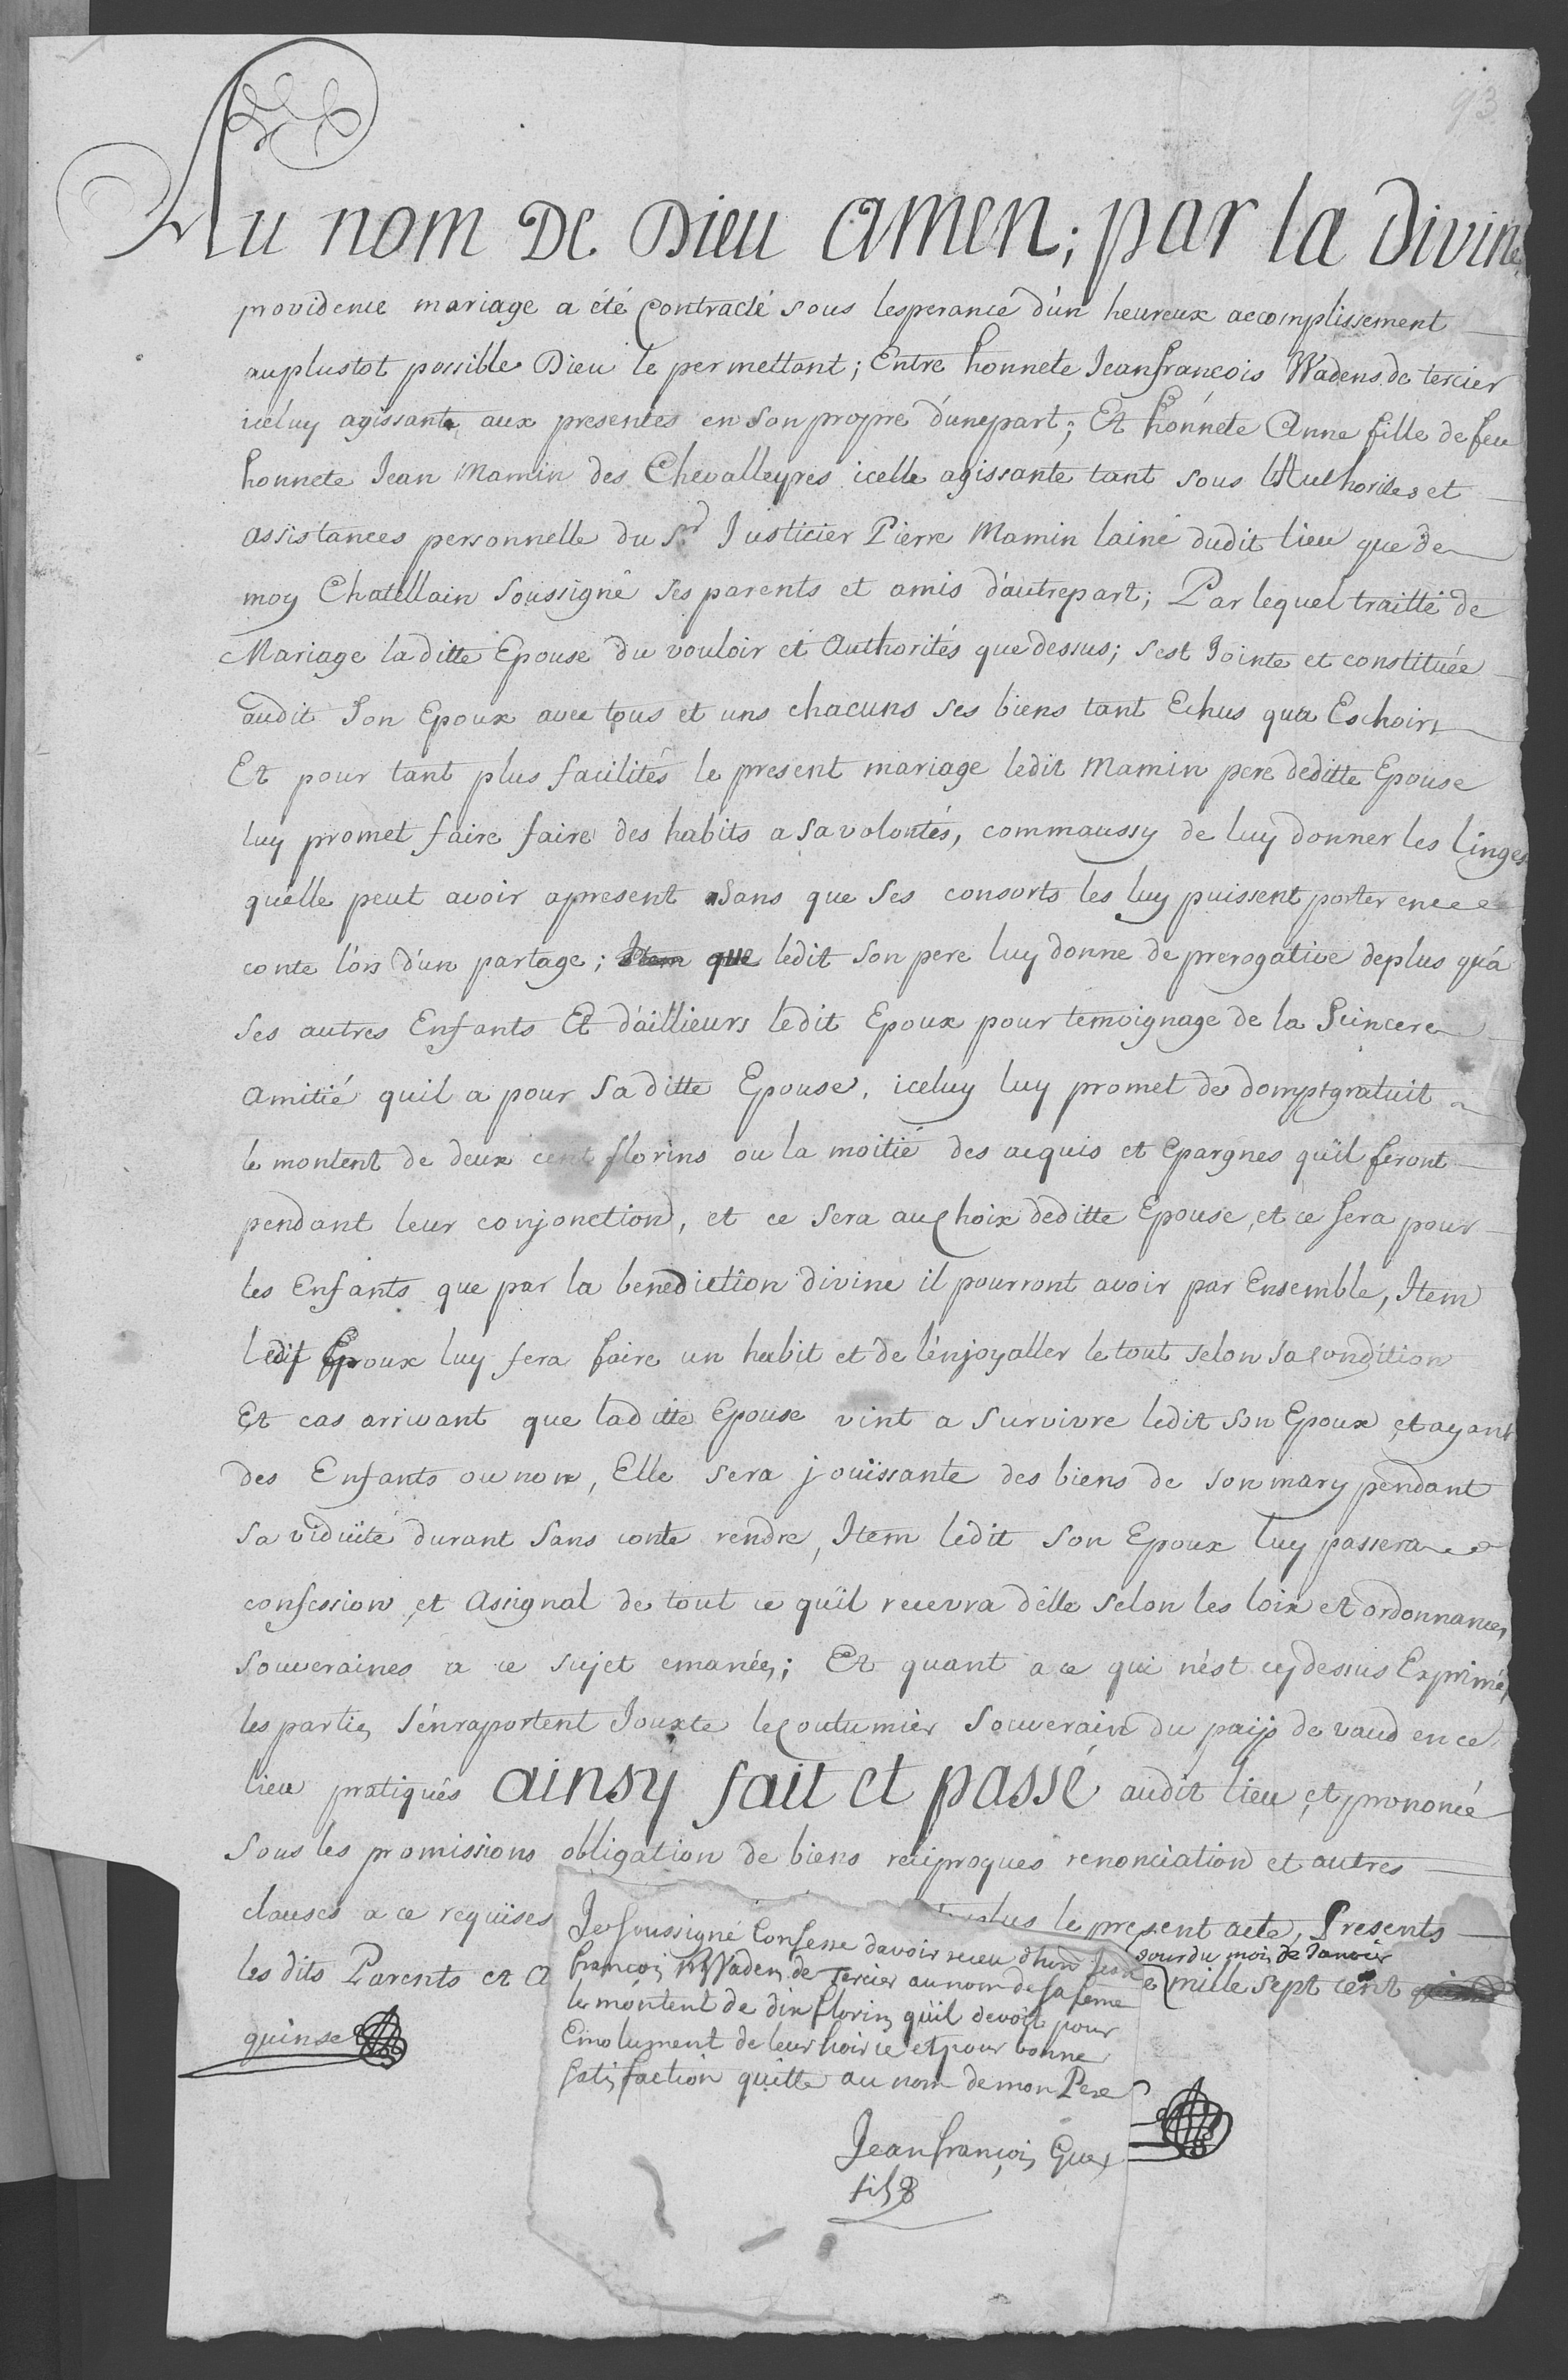 93
Au nom De Dieu amen; par la Divine
providence mariage a été Contracté sous lesperance d'un heureux accomplissement
auplustot possible Dieu le permettant; Entre honnete Jeanfrancois Wadens de tercier
iceluy agissante aux presentes en son propre d'unepart; Et honnete Anne fille de feu
honnete Jean Mamin des Chevalleyres icelle agissante tant sous lAuthorités et
assistances personnelle du Sr Justicier Pierre Mamin lainé dudit lieu que de
moy Chatellain soussigné ses parents et amis d'autrepart; Par lequel traitté de
Mariage laditte Epouse du vouloir et Authorités que dessus; s'est Jointe et constituée
audit son Epoux avec tous et uns chacuns ses biens tant Echus qua Eschoirs
Et pour tant plus facilités le present mariage ledit Mamin pere deditte Epouse
luy promet faire faire des habits a sa volontés, commaussy de luy donner les linges
qu'elle peut avoir apresent sans que ses consorts les luy puissent porter en
conte l'ors d'un partage; Item que ledit son pere luy donne de prerogative deplus qu'a
ses autres Enfants Et d'aillieurs ledit Epoux pour temoignage de la Scincere
amitié quil a pour sa ditte Epouse, iceluy luy promet de domptgratuit
le montent de deux cent florins ou la moitié des acquis et Epargnes qu'il feront
pendant leur conjonction, et ce sera au choix deditte Epouse, et ce sera pour
les Enfants que par la benediction divine il pourront avoir par Ensemble, Item
ledit Epoux luy fera faire un habit et de l'enjoyaller le tout selon sa condition
Et cas arrivant que laditte Epouse vint a survivre ledit son Epoux, et ayant
des Enfants ou non, Elle sera jouïssante des biens de son mary pendant
sa viduité durant sans conte rendre, Item ledit son Epoux luy passera
confession et assignal de tout ce qu'il recevra d'elle selon les loix et ordonnances
souveraines a ce sujet emanées; Et quant a ce qui n'est cy dessus Exprimé,
les parties s'enraportent Jouxte le Coutumier souverain du paijs de vaud en ce
lieu pratiqués ainsy fait et passé audit lieu, et prononcé
sous les promissions obligation de biens reciproques renonciation et autres
clauses a ce requises le present acte, Presents
les dits Parents et A jour du mois de Janvier
mille sept cent
quinse
Je soussigné Confesse davoir receu dhon Jean
francois Wadens de Tercier au nom de sa feme
le montent de dix florins qu'il devoit pour
Emolument de leur hoirie et pour bonne
satisfaction quitte au nom de mon Pere
Jeanfrançois Guex
fils